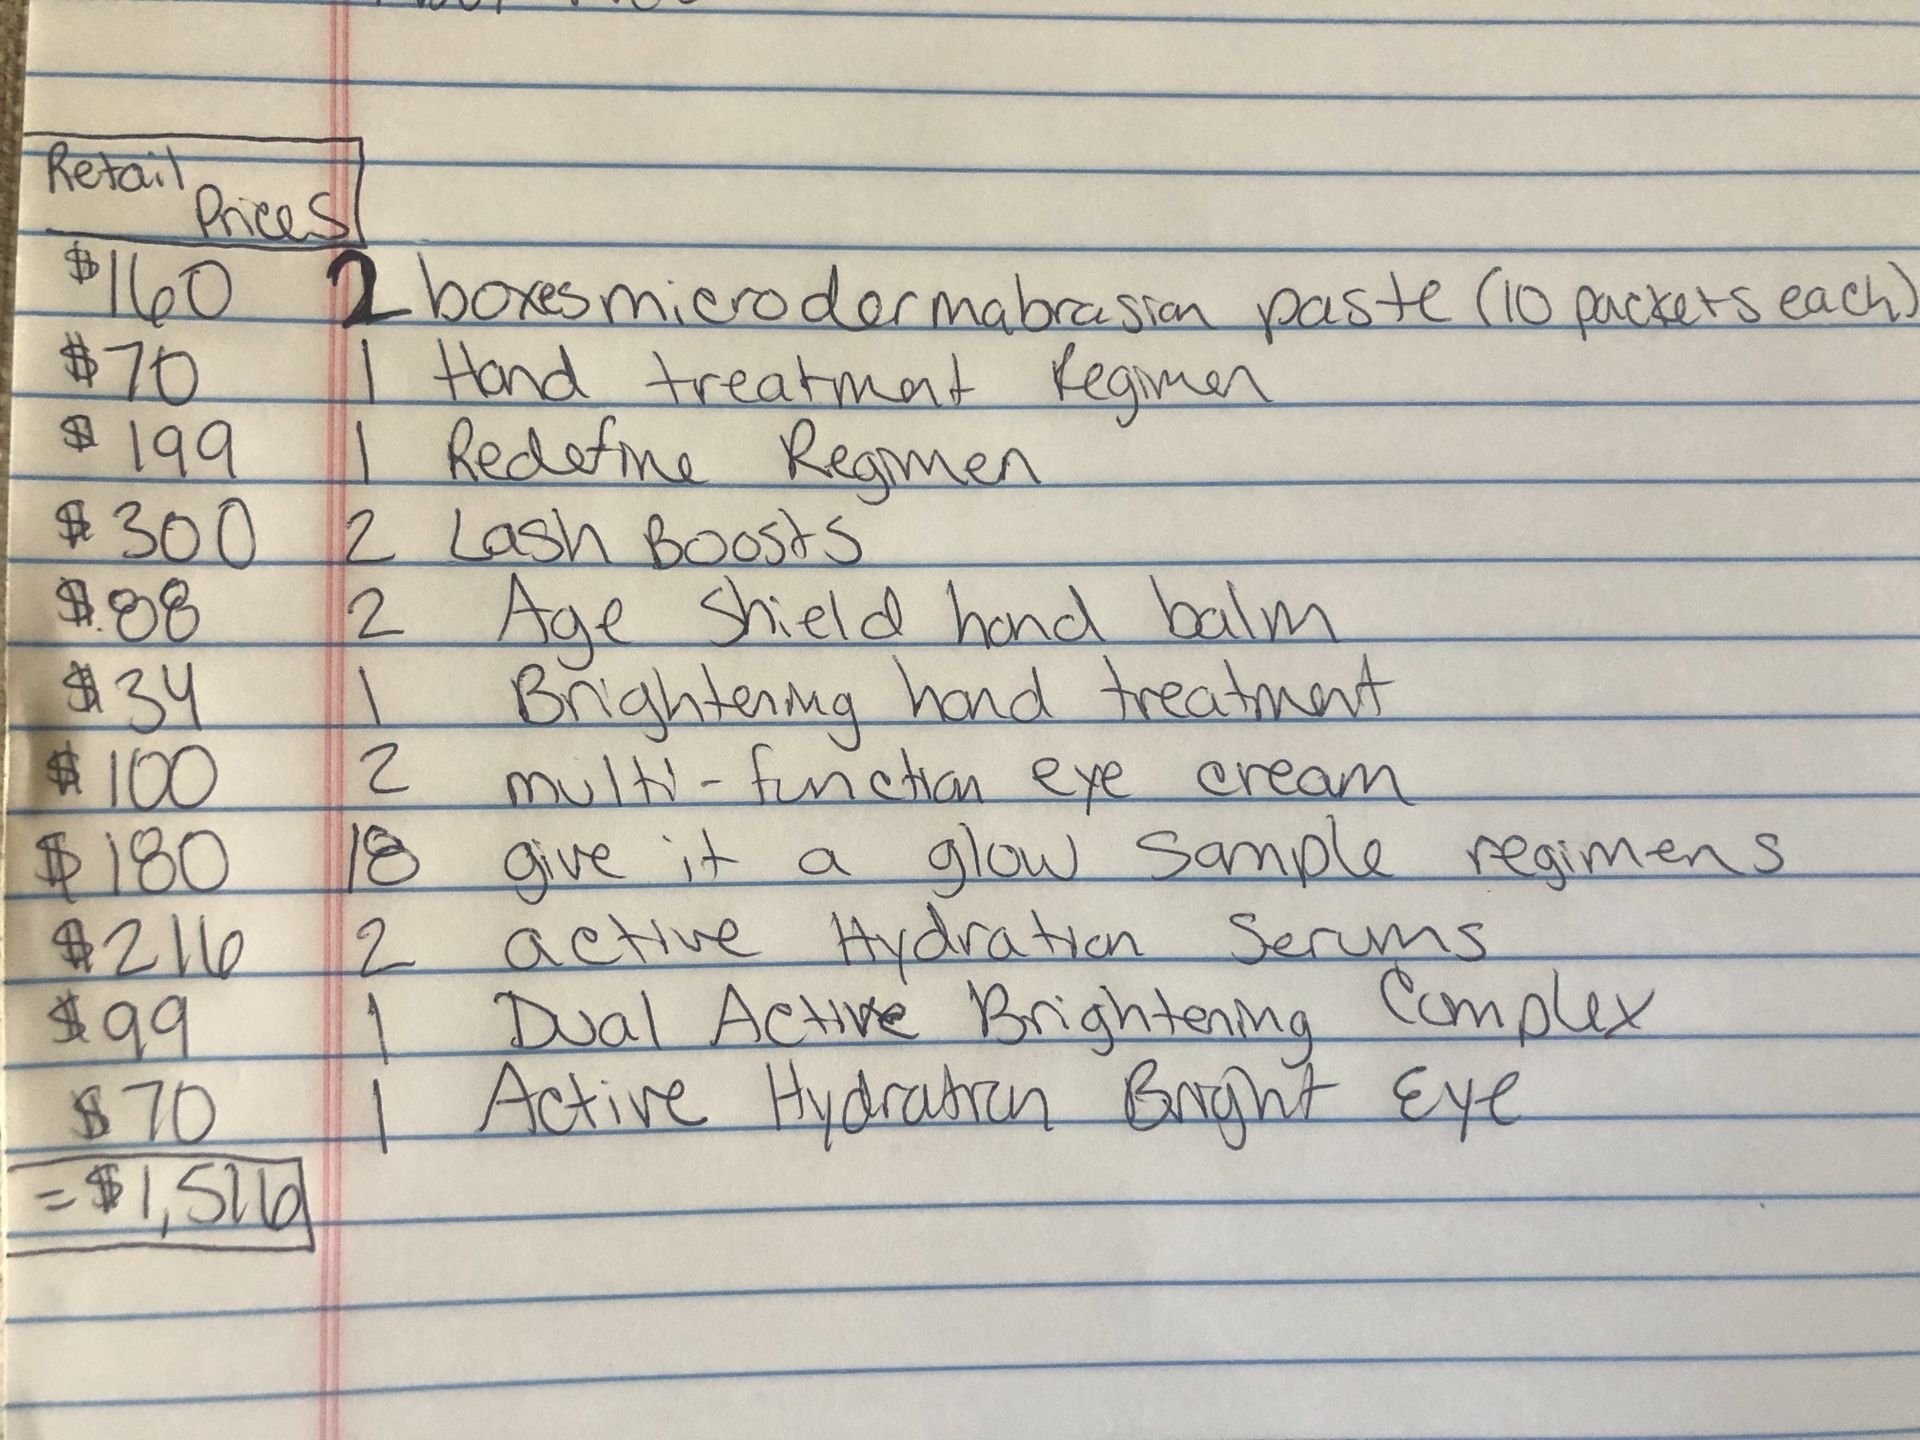 Retail
Prices
$160 2 boxes microdermabrasion paste (10 packets each)
$70 1 Hand treatment Regimen
$199 1 Redefine Regimen
$300 2 Lash Boosts
$88 2 Age Shield hand balm
$34 1 Brightening hand treatment
$100 2 multi-function eye cream
$180 18 give it a glow sample regimens
$216 2 active Hydration Serums
$99 1 Dual Active Brightening Complex
$70 1 Active Hydration Bright Eye
=$1,516